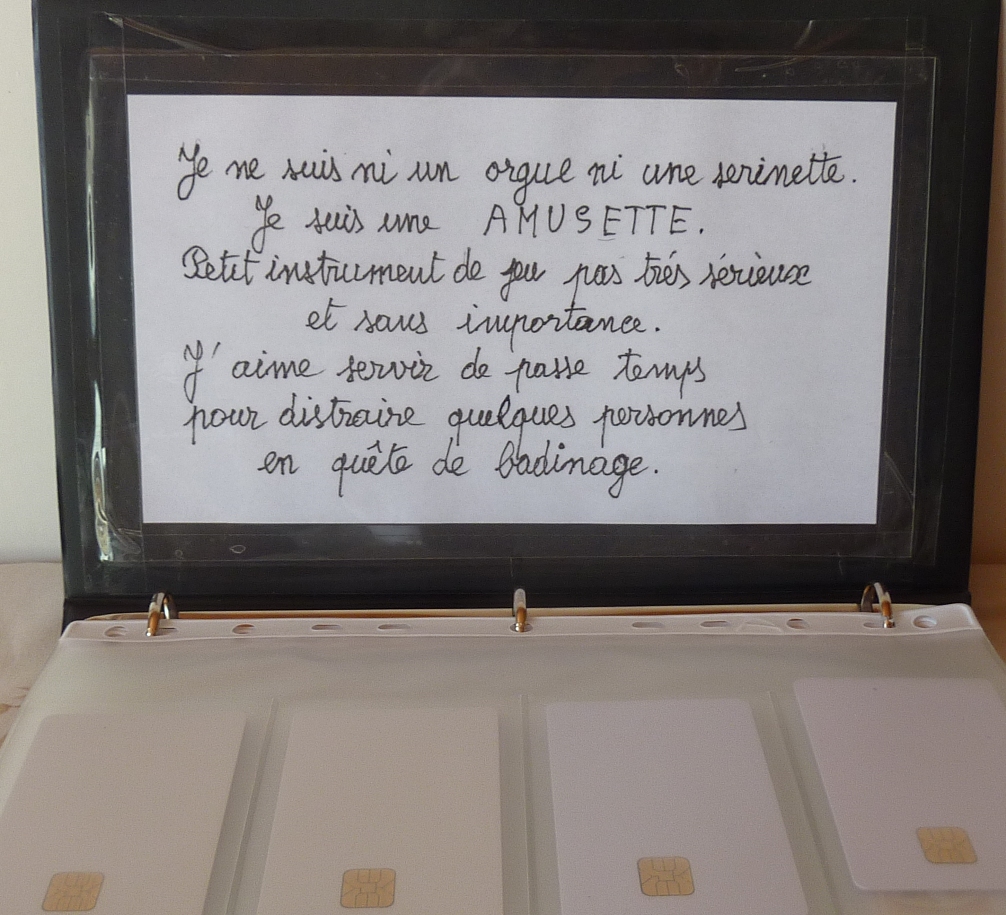 Je ne suis ni un orgue ni une serinette.
Je suis une AMUSETTE.
Petit instrument de jeu pas trés sérieux
et sans importance.
J'aime servir de passe temps
pour distraire quelques personnes
en quête de badinage.